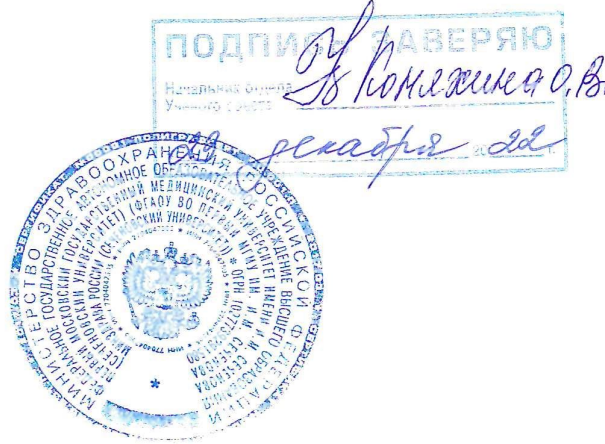 ПОДПИСЬ ЗАВЕРЯЮ
Начальник отдела
Ученого совета
О.В.
29 декабря 2022 г.
МИНИСТЕРСТВО ЗДРАВООХРАНЕНИЯ РОССИЙСКОЙ ФЕДЕРАЦИИ
ФЕДЕРАЛЬНОЕ ГОСУДАРСТВЕННОЕ АВТОНОМНОЕ ОБРАЗОВАТЕЛЬНОЕ УЧРЕЖДЕНИЕ ВЫСШЕГО ОБРАЗОВАНИЯ
ПЕРВЫЙ МОСКОВСКИЙ ГОСУДАРСТВЕННЫЙ МЕДИЦИНСКИЙ УНИВЕРСИТЕТ ИМЕНИ И.М. СЕЧЕНОВА
(СЕЧЕНОВСКИЙ УНИВЕРСИТЕТ) (ФГАОУ ВО ПЕРВЫЙ МГМУ ИМ. И.М. СЕЧЕНОВА
МИНЗДРАВА РОССИИ (СЕЧЕНОВСКИЙ УНИВЕРСИТЕТ)) * ОГРН